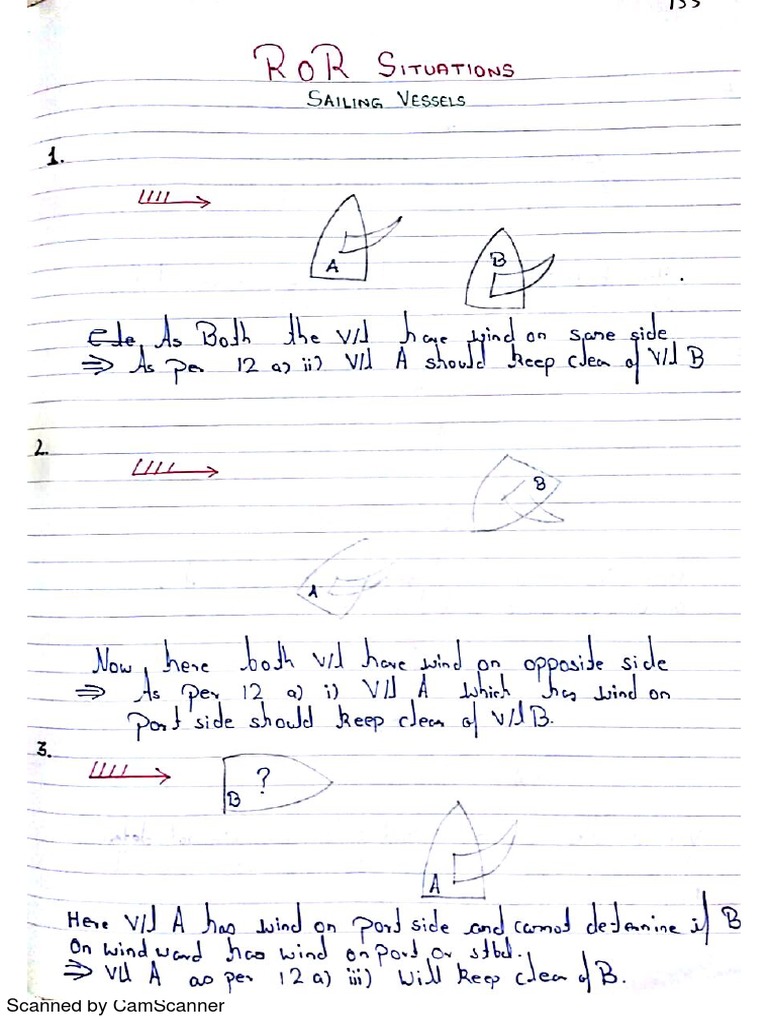 133
RoR SITUATIONS
SAILING VESSELS
1.
A
B
As Both the v/l have wind on same side
⇒ As per 12 a) ii) V/l A should keep clear of V/l B
2.
B
A
Now, here both v/l have wind on opposite side
⇒ As per 12 a) i) V/l A which has wind on
port side should keep clear of v/l B.
3.
B ?
A
Here V/l A has wind on port side and cannot determine if B
on windward has wind on port or stbd.
⇒ V/l A as per 12 a) iii) will keep clear of B.
Scanned by CamScanner